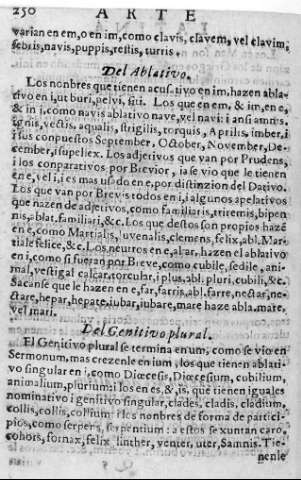 250 ARTE
varian en em, o en im, como clavis, clavem, vel clavim,
sebris, navis, puppis, restis, turris.
Del Ablativo.
Los nonbres que tienen acusativo en im, hazen abla-
tivo en i, ut buri, pelvi, siti. Los que en em, & im, en e,
& in i, como navis ablativo nave, vel navi: i ansi amnis,
ignis, vestis, aqualis, strigilis, torquis, Aprilis, imber, i
sus conpuestos September, October, November, De-
cember, i supellex. Los adjetivos que van por Prudens,
i los conparativos por Brevior, ia se vio que le tienen
en e, vel i, i es mas usado en e, por distinzion del Dativo.
Los que van por Brevis todos en i, i algunos apelativos
que nazen de adjetivos, como familiaris, triremis, bipen
nis, ablat. familiari, &c. Los que destos son propios hazē
en e, como Martialis, juvenalis, clemens, felix, abl. Mar-
tiale felice, &c. Los neutros en e, al, ar, hazen el ablativo
en i, como si fueran por Breve, como cubile, sedile, ani-
mal, vestigal calcar, torcular, i plus, abl. pluri, cubili, &c.
Sacanse que le hazen en e, far, farris, abl. farre, nectar, ne-
ctare, hepar, hepate, iubar, iubare, mare haze abla. mare,
vel mari.
Del Genitivo plural.
El Genitivo plural se termina en um, como se vio en
Sermonum, mas crezenle en ium, los que tienen ablati-
vo singular en i, como Diœcesis, Diœcesium, cubilium,
animalium, plurium: i los en es, & is, que tienen iguales
nominativo i genitivo singular, clades, cladis, cladium,
collis, collis, collium: i los nonbres de forma de partici-
pios, como serpens, serpentium: a estos se xuntan caro,
cohors, fornax, felix, linther, venter, uter, Samnis. Tie-
nenle